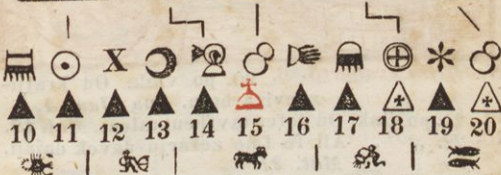 X
10 11 12 13 14 15 16 17 18 19 20